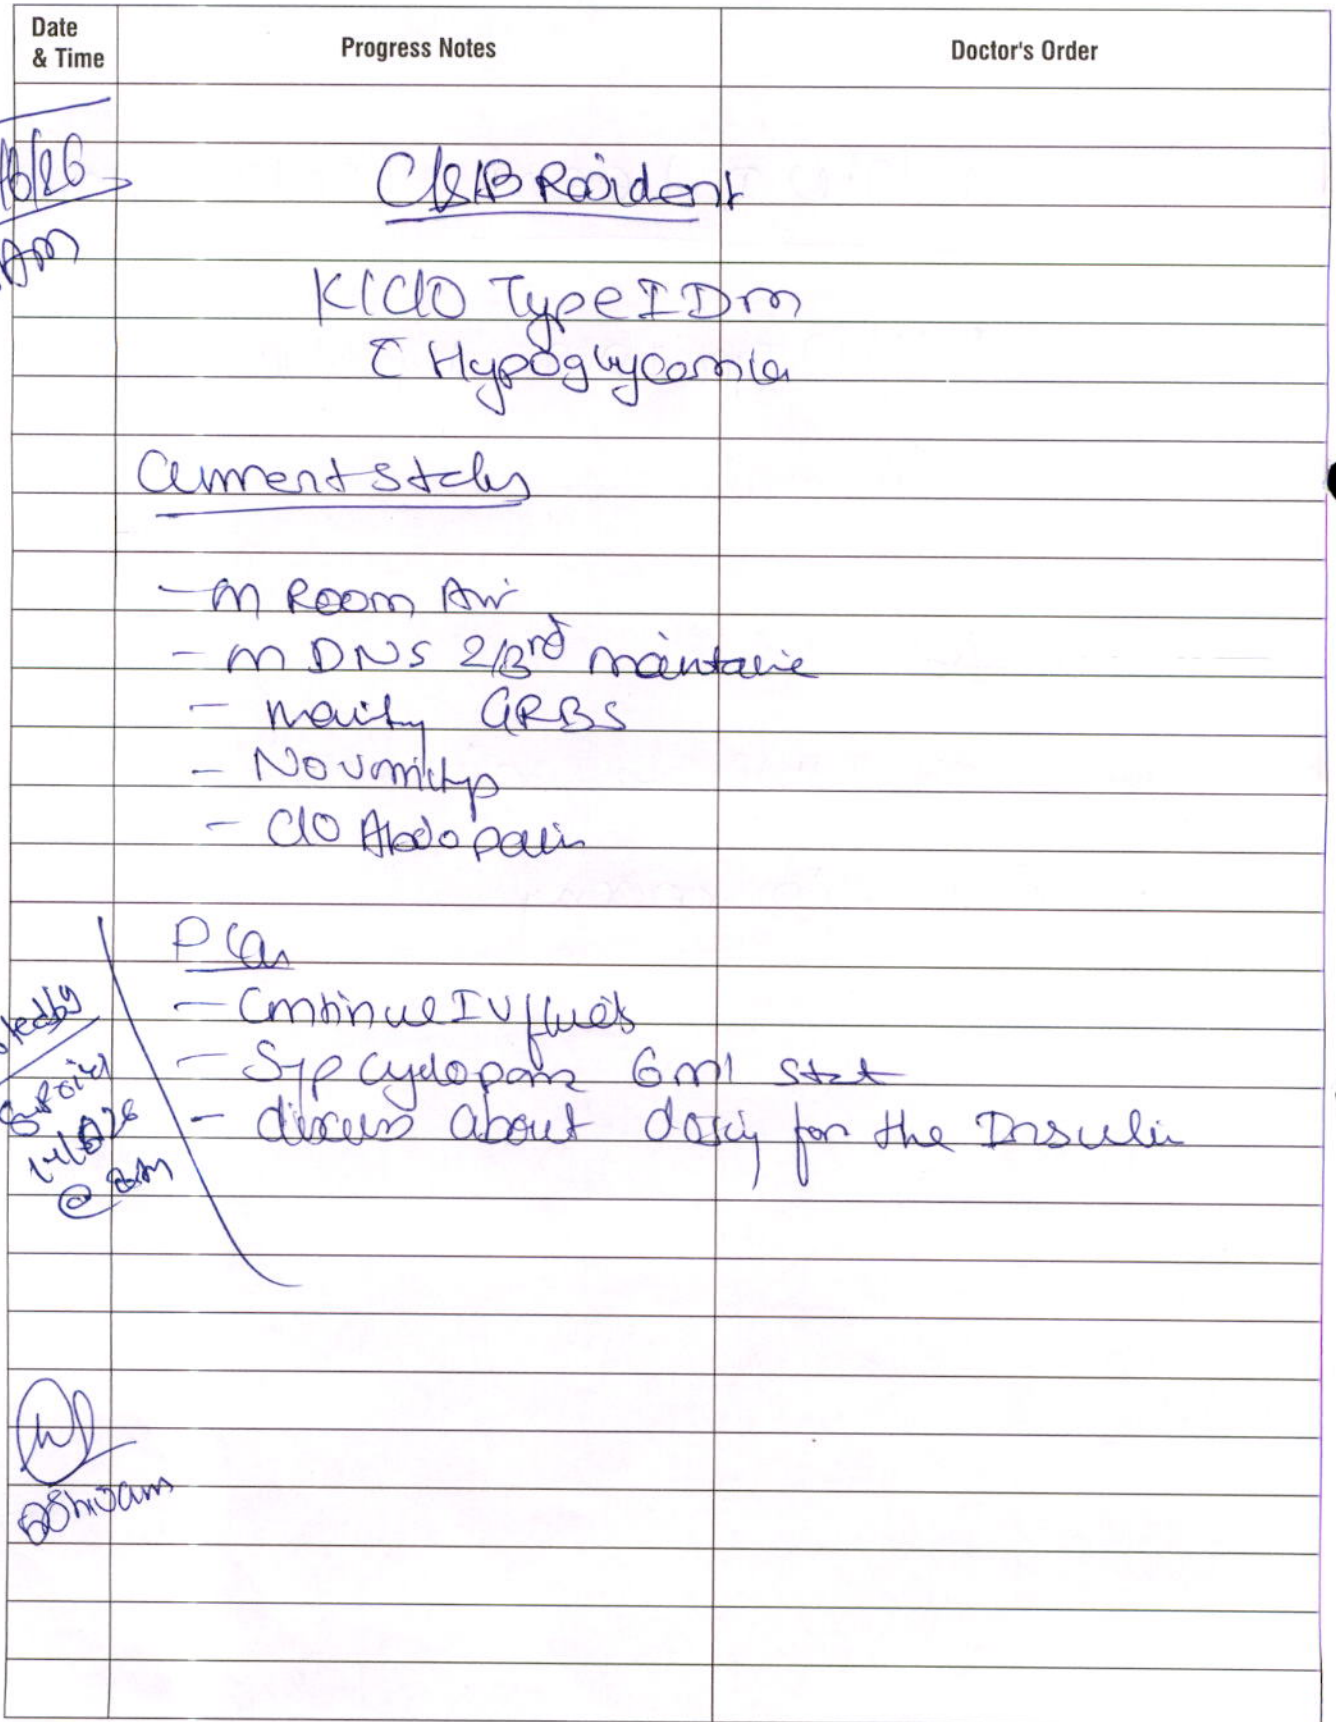 Date & Time
Progress Notes
Doctor's Order
/26
AM
C/S/B Resident
K/C/O Type I DM
c̄ Hypoglycemia
Current Status
- on Room Air
- on DNS 2/3rd maintaine
- GRBS
- No vomiting
- C/O Abdo pain
Plan
- Continue IV fluids
- Syp Cyclopam 6ml stat
- discuss about dosing for the Insulin
@ 8AM
Shivam